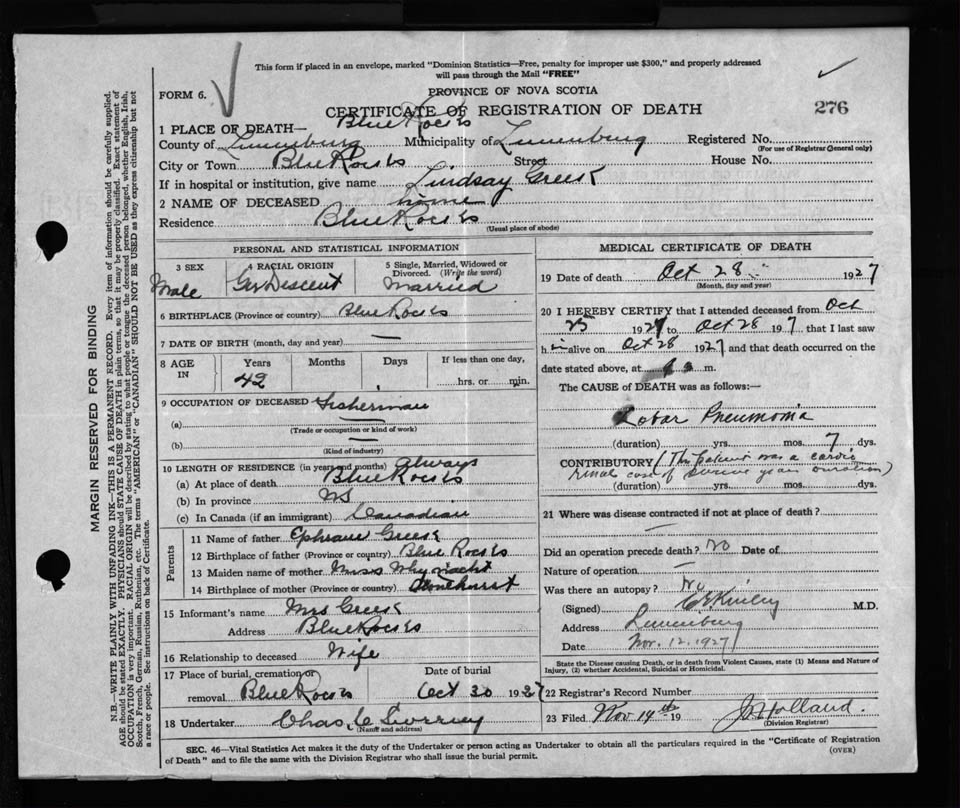 This form if placed in an envelope, marked "Dominion Statistics—Free, penalty for improper use $300," and properly addressed
will pass through the Mail "FREE"
FORM 6.
PROVINCE OF NOVA SCOTIA
CERTIFICATE OF REGISTRATION OF DEATH
276
1 PLACE OF DEATH— Blue Rocks
County of Lunenburg Municipality of Lunenburg Registered No.
(For use of Registrar General only)
City or Town Blue Rocks Street House No.
If in hospital or institution, give name Lindsay Greek
2 NAME OF DECEASED home
Residence Blue Rocks
(Usual place of abode)
PERSONAL AND STATISTICAL INFORMATION
3 SEX
Male
4 RACIAL ORIGIN
Ger Descent
5 Single, Married, Widowed or
Divorced. (Write the word)
Married
6 BIRTHPLACE (Province or country) Blue Rocks
7 DATE OF BIRTH (month, day and year) —
8 AGE IN
Years Months Days If less than one day,
42 hrs. or min.
9 OCCUPATION OF DECEASED Fisherman
(a)
(Trade or occupation or kind of work)
(b) —
(Kind of industry)
10 LENGTH OF RESIDENCE (in years and months) Always
(a) At place of death Blue Rocks
(b) In province NS
(c) In Canada (if an immigrant) Canadian
Parents
11 Name of father Ephraim Greek
12 Birthplace of father (Province or country) Blue Rocks
13 Maiden name of mother Miss Whynacht
14 Birthplace of mother (Province or country) Stonehurst
15 Informant's name Mrs Greek
Address Blue Rocks
16 Relationship to deceased Wife
17 Place of burial, cremation or Date of burial
removal Blue Rocks Oct 30 1927
18 Undertaker Chas C
(Name and address)
MEDICAL CERTIFICATE OF DEATH
19 Date of death Oct 28 1927
(Month, day and year)
20 I HEREBY CERTIFY that I attended deceased from Oct
25 1927 to Oct 28 1927, that I last saw
him alive on Oct 28 1927 and that death occurred on the
date stated above, at m.
The CAUSE of DEATH was as follows:—
Lobar Pneumonia
(duration) yrs. mos. 7 dys.
CONTRIBUTORY (This patient was a cardio
renal case of years duration)
(duration) yrs. mos. dys.
21 Where was disease contracted if not at place of death?
—
Did an operation precede death? No Date of
Nature of operation —
Was there an autopsy? No
(Signed) M.D.
Address Lunenburg
Date Nov. 12, 1927
State the Disease causing Death, or in death from Violent Causes, state (1) Means and Nature of
Injury, (2) whether Accidental, Suicidal or Homicidal.
22 Registrar's Record Number
23 Filed Nov 14th 19 Holland
(Division Registrar)
SEC. 46—Vital Statistics Act makes it the duty of the Undertaker or person acting as Undertaker to obtain all the particulars required in the "Certificate of Registration
of Death" and to file the same with the Division Registrar who shall issue the burial permit.
(OVER)
MARGIN RESERVED FOR BINDING
N.B.—WRITE PLAINLY WITH UNFADING INK—THIS IS A PERMANENT RECORD. Every item of information should be carefully supplied.
AGE should be stated EXACTLY. PHYSICIANS should STATE CAUSE OF DEATH in plain terms, so that it may be properly classified. Exact statement of
OCCUPATION is very important. RACIAL ORIGIN will be described by stating to what people or tongue the deceased person belonged, whether English, Irish,
Scotch, French, German, Russian, Ruthenian, etc. The terms "AMERICAN" or "CANADIAN" SHOULD NOT BE USED as they express citizenship but not
a race or people. See instructions on back of Certificate.